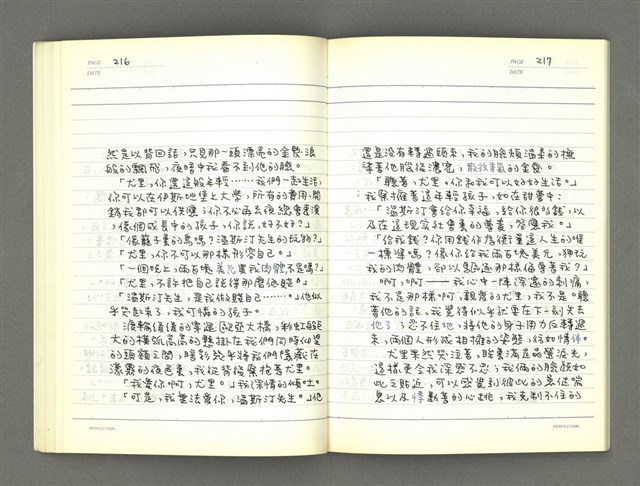 PAGE 216
DATE
然是以背回話,只見那一頭漂亮的金髮浪
般的飄飛,夜暗中我看不到他的臉。
「尤里,你還這般年輕……我們一起生活,
你可以在伊斯坦堡上大學,所有的費用、開
銷我都可以供應,你不必再去夜總會表演
,像個成長中的孩子,你說,好不好?」
「像籠子裏的鳥嗎?溫斯汀先生的玩物?」
「尤里,你不可以那樣形容自己。」
「一個晚上兩百塊美元賣我肉體不是嗎?」
「尤里,不許把自己說得那麼低賤。」
「溫斯汀先生,是我做賤自己……。」他似
乎哭起來了,我可憐的孩子。
渡輪緩緩的穿過歐亞大橋,彩虹般
大的橫弧高高的懸掛在我們同時仰望
的頭額之間,暗影幾乎將我們隱藏在
濃霧的夜色裏,我從背後擁抱著尤里。
「我愛你啊,尤里。」我深情的傾吐。
「可是,我無法愛你,溫斯汀先生。」他
PERFECTION
PAGE 217
DATE
還是沒有轉過頭來,我的臉頰溫柔的撫
揉著他腦後濃密,散放著香氣的金髮。
「聽著,尤里,你和我可以好好生活。」
我緊擁著這年輕孩子,如在甜蜜中:
「溫斯汀會給你幸福,給你很多錢,以
及在這現實社會裏的尊貴,答應我。」
「給我錢?你用錢作為衡量這人生的唯
一標準嗎?像你給我兩百塊美元,狎玩
我的肉體,卻以驅逐那樣侮辱著我?」
啊,啊——我心中一陣深邃的刺痛,
我不是那樣啊,親愛的尤里,我不是。聽
著他的話,我覺得似乎就要在下一刻失去
他了,忍不住地,將他的身子用力反轉過
來,兩個人形成相擁的姿態,彷如情侶。
尤里果然哭泣著,貼裏滿是晶瑩淚光,
這樣更令我深感不忍;我倆的臉頰如
此之貼近,可以感覺到彼此的急促喘
息以及悸動著的心跳,我克制不住的
PERFECTION